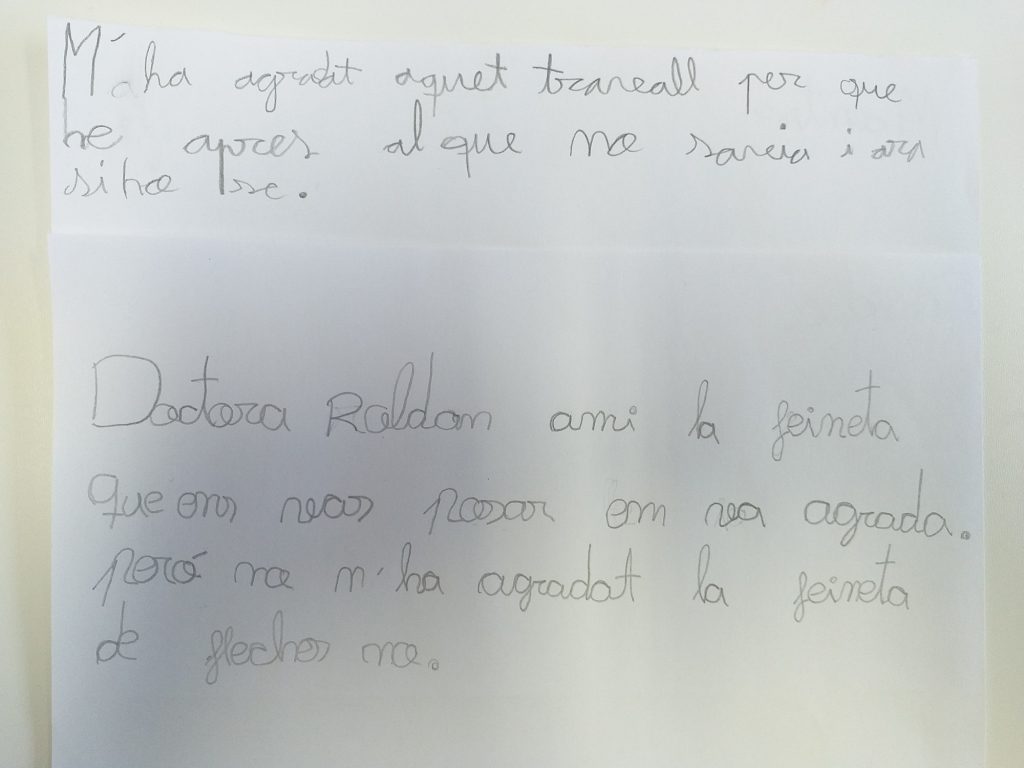 M'ha agradat aquet traveall per que
he apres al que no savia i ara
si ho se.
Doctora Roldan ami la feineta
que ens veas posar em va agrada.
peró no m'ha agradat la feineta
de flechos no.